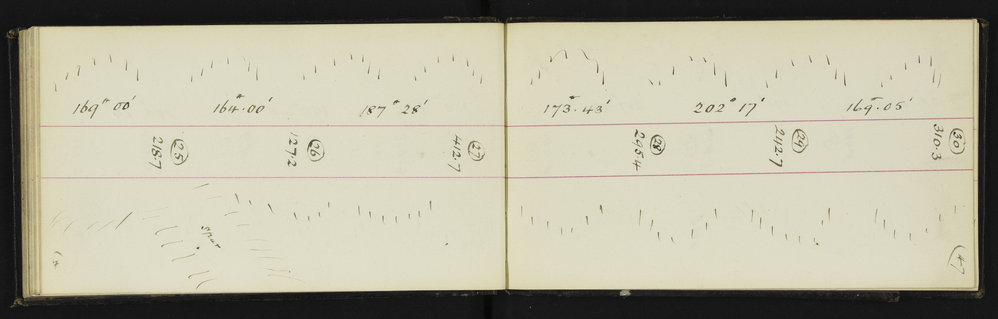 169° 00'
164.00'
187° 28'
173.43'
202° 17'
169.05'
25
218.7
26
127.2
27
412.7
28
295.4
29
242.7
30
310.3
Spur